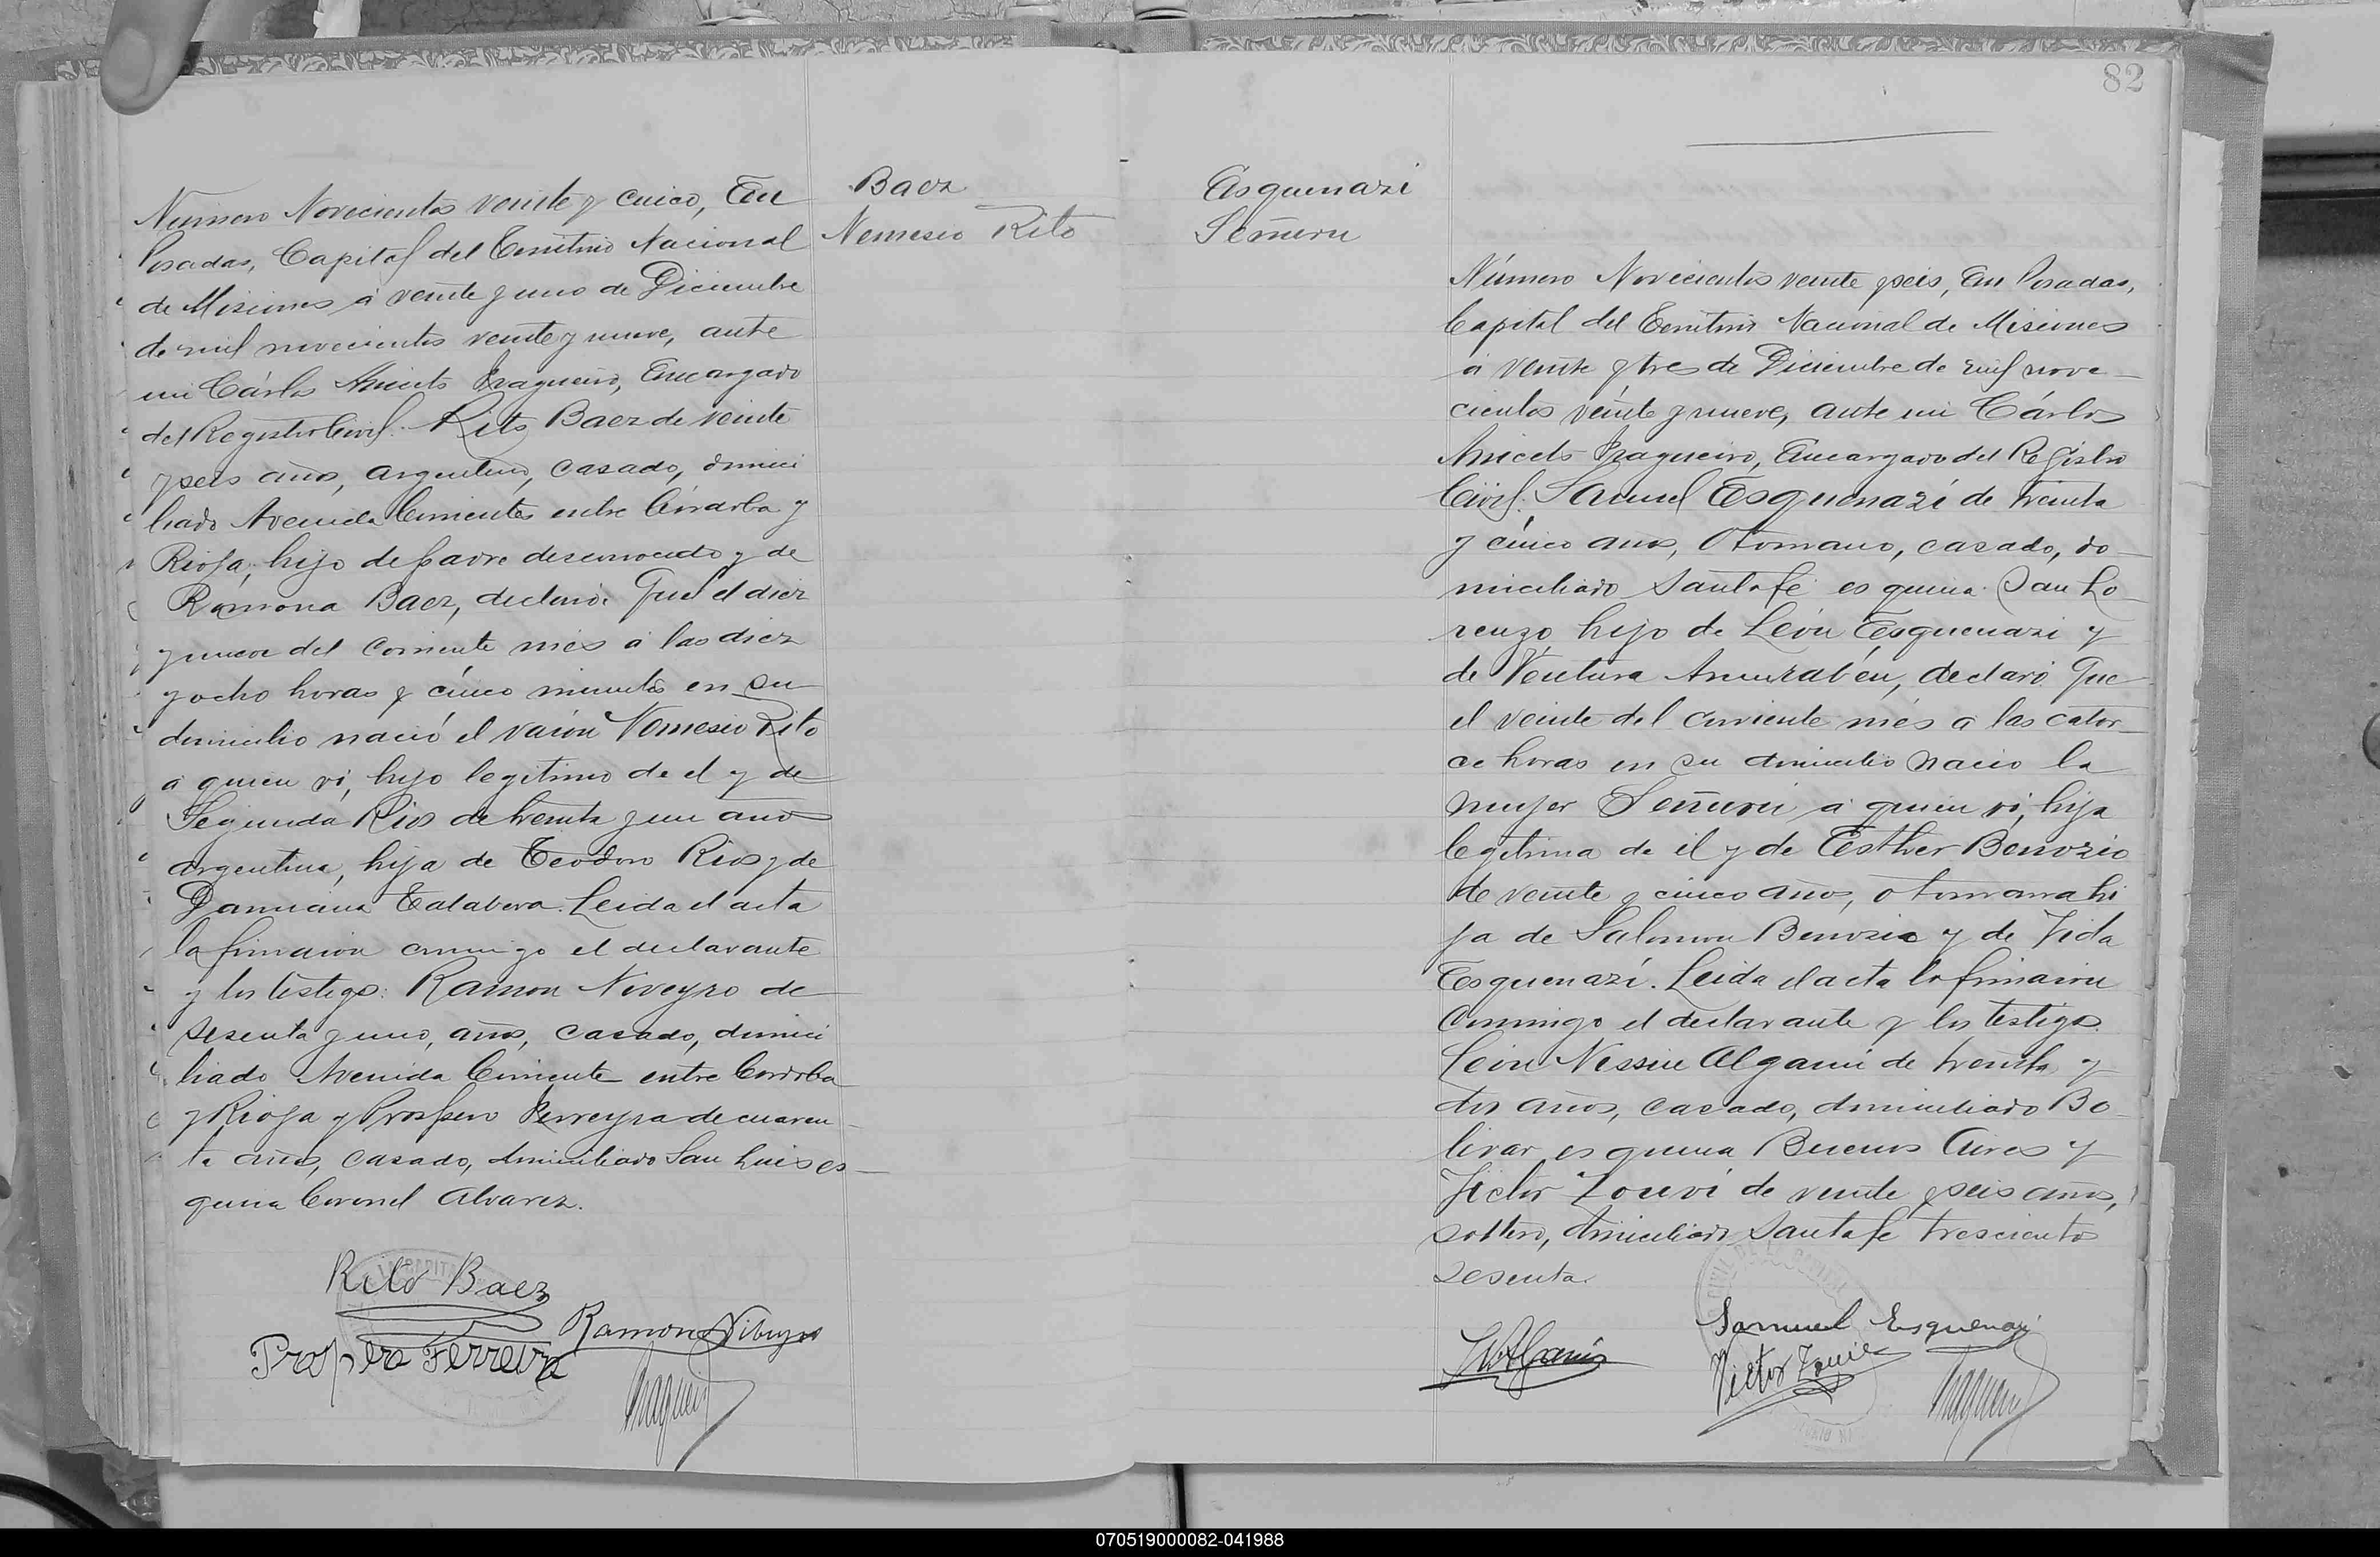 Baez
Nemesio Rito
Número Novecientos veinte y cinco, En
Posadas, Capital del Territorio Nacional
de Misiones á veinte y uno de Diciembre
de mil novecientos veinte y nueve, ante
mi Cárlos Aniceto Fragueiro, Encargado
del Registro Civil: Rito Baez de veinte
y seis años, argentino, casado, domici
liado Avenida Corrientes entre Córdoba y
Rioja, hijo de padre desconocido y de
Ramona Baez, declaró: Que el diez
y nueve del corriente mes á las diez
y ocho horas y cinco minutos en su
domicilio nació el varón Nemesio Rito
á quien ví, hijo legítimo de el y de
Segunda Rios de treinta y un años
argentina, hija de Teodoro Rios y de
Damiana Talabera. Leida el acta
la firmaron conmigo el declarante
y los testigos: Ramon Niveyro de
sesenta y uno, años, casado, domici
liado Avenida Corriente entre Cordoba
y Rioja y Prospero Ferreyra de cuaren
ta años, casado, domiciliado San Luis es-
quina Coronel Alvarez.
Rito Baez
Ramon
Prospero Ferreira
82
Esquenazi
Número Novecientos veinte y seis, En Posadas,
Capital del Territorio Nacional de Misiones
á veinte y tres de Diciembre de mil nove-
cientos veinte y nueve, ante mi Cárlos
Aniceto Fragueiro, Encargado del Registro
Civil: Samuel Esquenazi de treinta
y cinco años, Otomano, casado, do-
miciliado Santa fé esquina San Lo-
renzo, hijo de León Esquenazi y
de Ventura, declaró Que
el veinte del corriente mes á las cator-
ce horas en su domicilio nació la
mujer á quien ví, hija
legítima de él y de Esther Benozio
de veinte y cinco años, otomana hi
ja de Salomon Benozio y de Vida
Esquenazi. Leida el acta la firmaron
conmigo el declarante y los testigos
León Nessin Algami de treinta y
dos años, casado, domiciliado Bo-
livar esquina Buenos Aires y
Victor Zouvi de veinte y seis años,
soltero, domiciliado Santa fe trescientos
sesenta.
Samuel Esquenazi
Victor
070519000082-041988